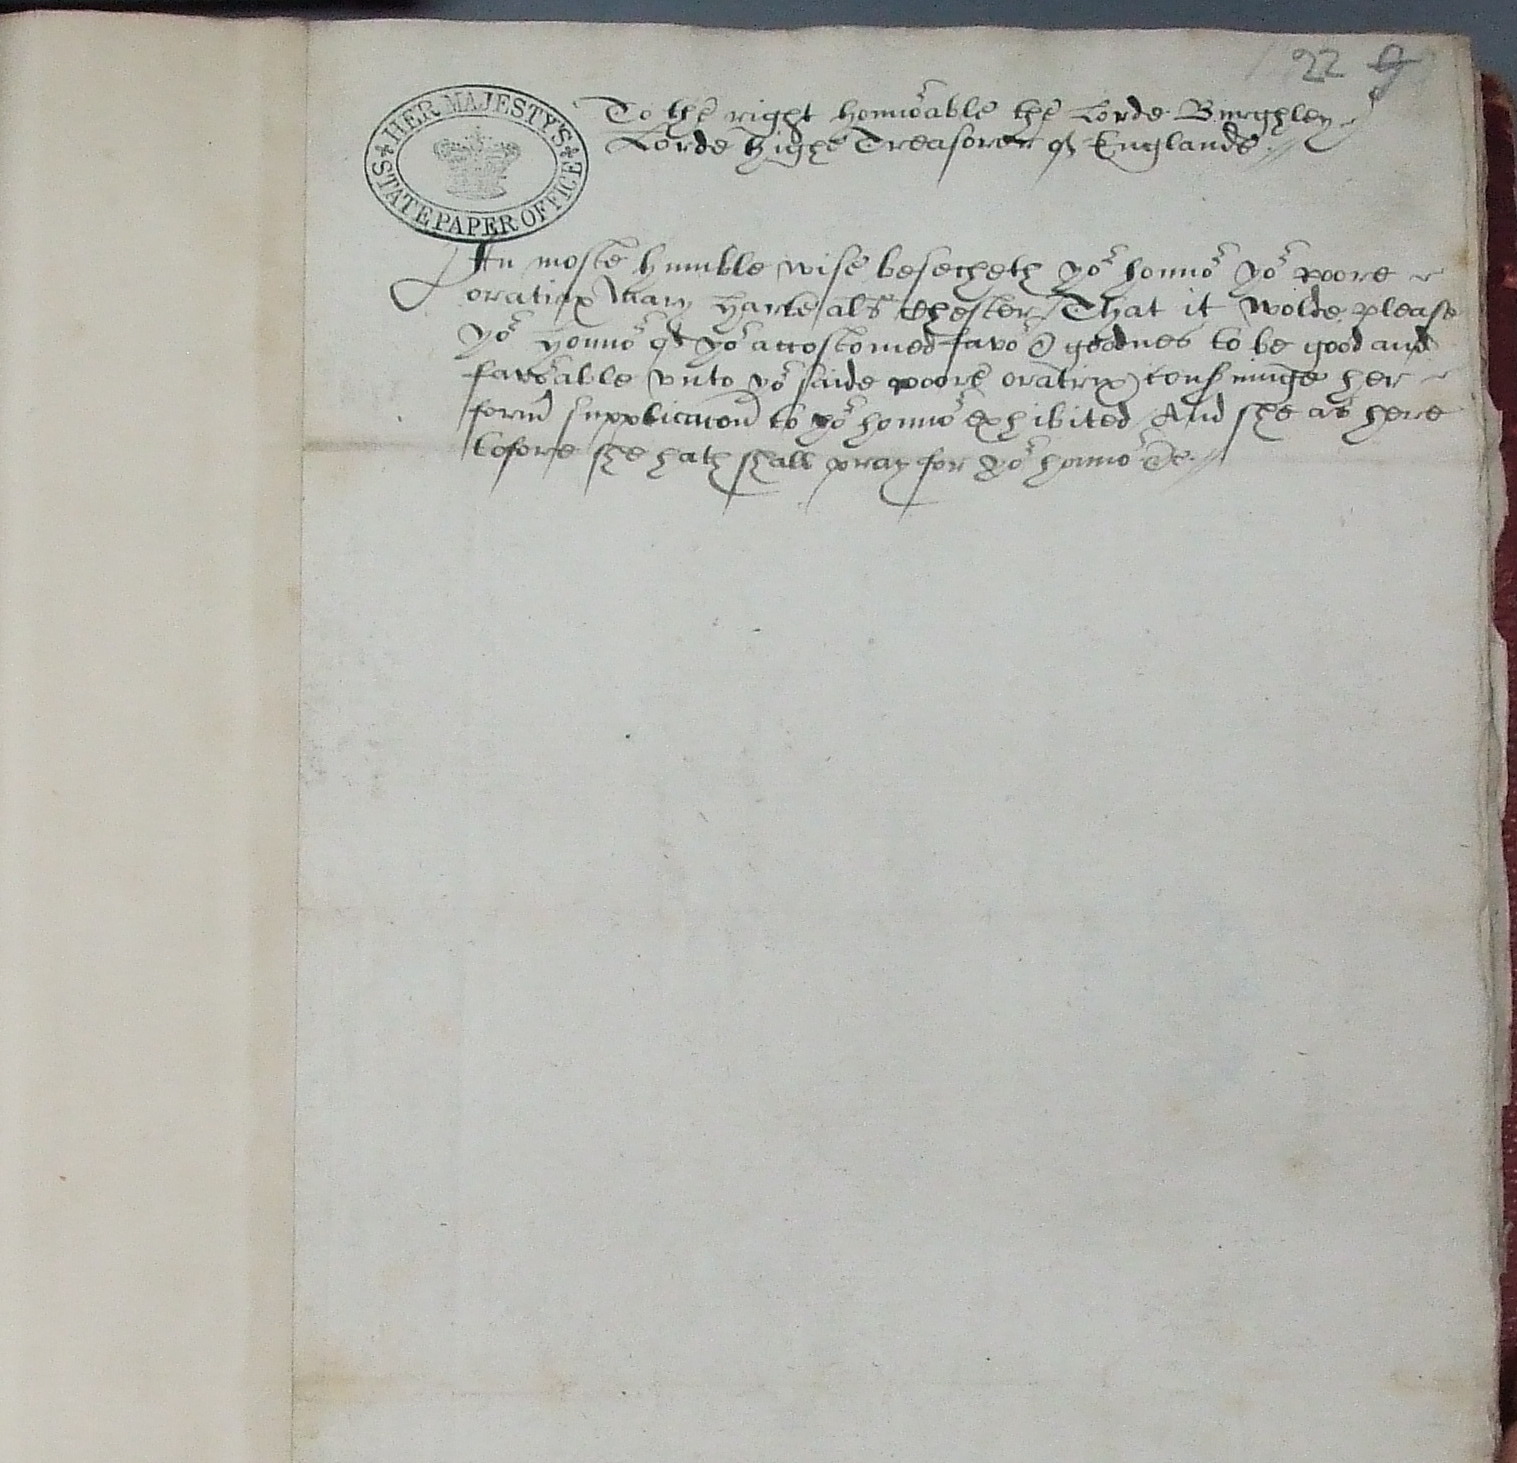 22
HER MAJESTYS
STATE PAPER OFFICE
To the right honnorable the Lorde Burghley
Lorde highe Treasorer of Englande.
In moste humble wise besecheth yor honnor yor poore
oratrix Mary Harte als Chester That it wolde please
yor honnor of yor accostomed favor & goodnes to be good and
favorable unto yor saide poore oratrix her
form supplicacon to yor honnor exhibited And she as here
tofore she hath shall pray for yor honnor &c.